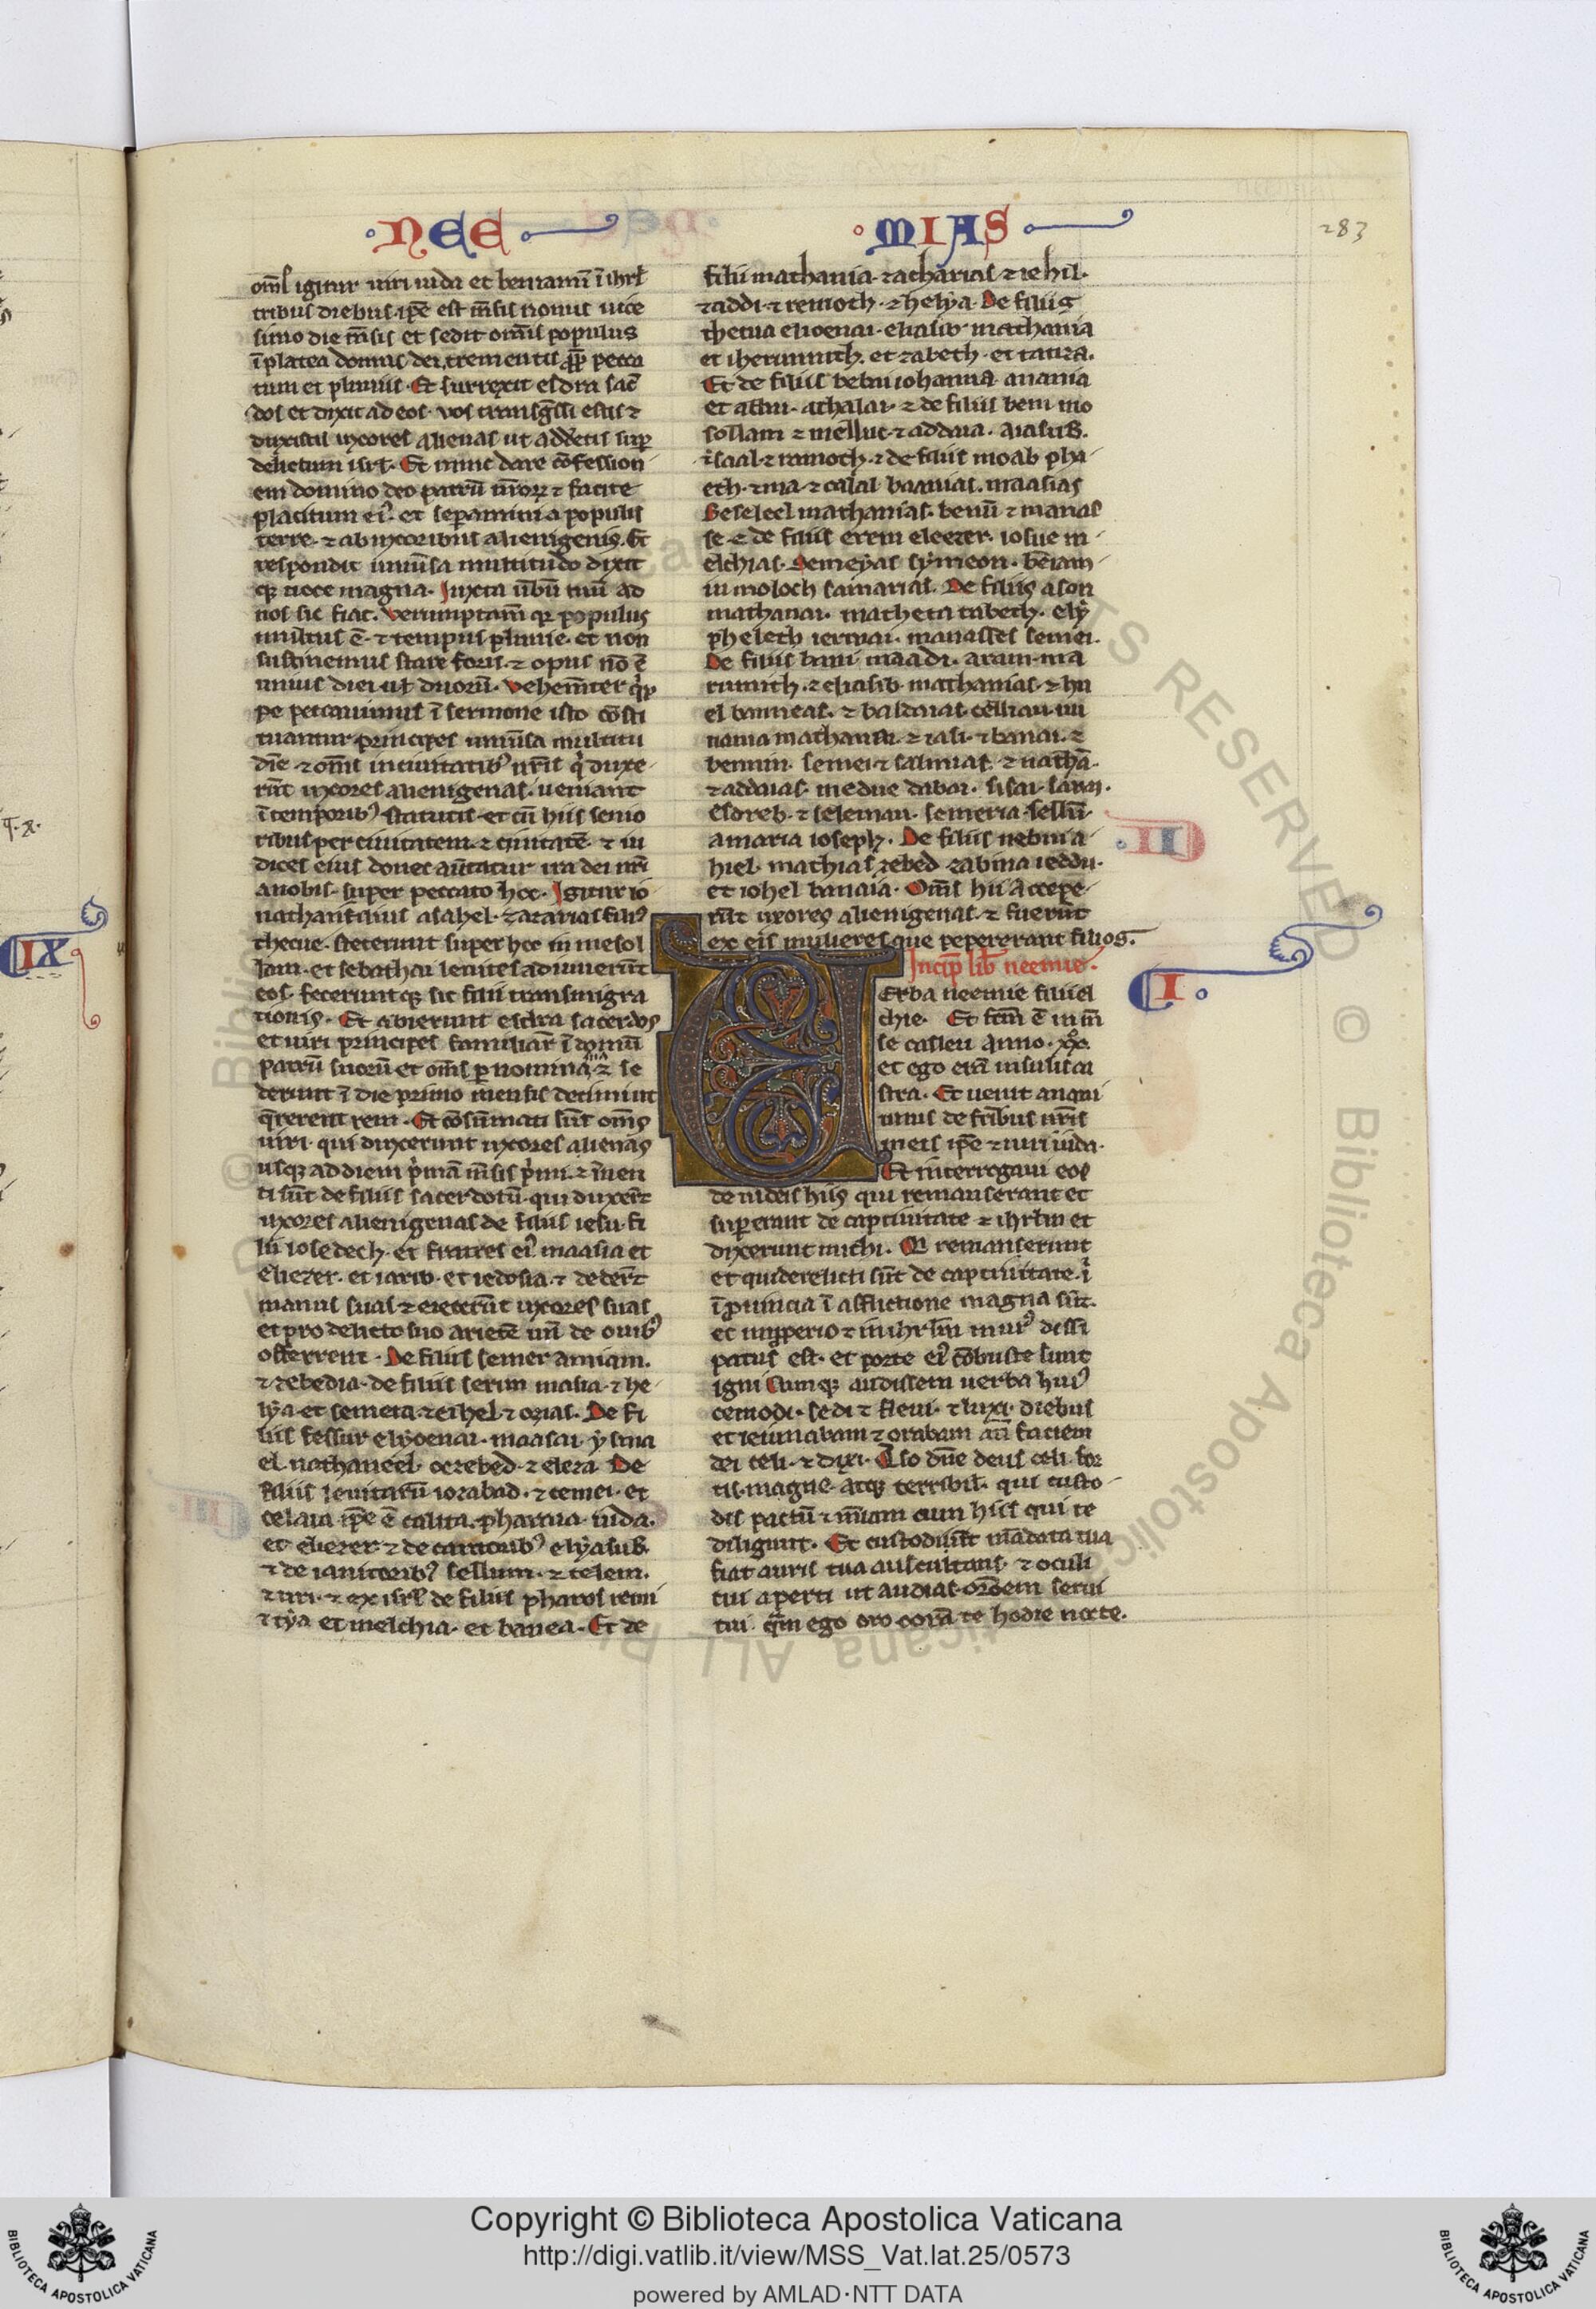 NEE
MIAS
283
om̄s igitur uiri iuda et beniamī ī ihrl̄m
tribus diebus. ip̄e est m̄sis nonus uice
simo die m̄sis et sedit om̄is populus
ī platea domus dei. trementes ꝓp̄ pecca
tum et pluuias. Et surrexit esdra sac̄
dos et dixit ad eos. uos transg̃ssi estis ⁊
duxistis uxores alienas ut adderetis sup̄
delictum isrl̄. Et nunc date cōfession
em domino deo patrū nr̄oꝝ ⁊ facite
placitum eiꝰ. et separamini a populis
terre. ⁊ ab uxoribus alienigenis. Et
respondit uniūsa multitudo dixit
qꝫ uoce magna. Iuxta ūbū tuū ad
nos sic fiat. Verumptam̄ qꝛ populus
multus ē. ⁊ tempus pluuie. et non
sustinemus stare foris. ⁊ opus nō ē
unius diei uł duorū. Vehem̄ter q̄p
pe peccauimus ī sermone isto cōsti
tuantur principes uniūsa multitu
dīe. ⁊ om̄s in ciuitatibꝰ nr̄is q̇ duxe
rūt uxores alienigenas. ueniant
ī temporibꝰ statutis. et cū hiis senio
ribus per ciuitatem. ⁊ ciuitatē. ⁊ iu
dices eius donec aūtatur ira dei nr̄i
a nobis. super peccato hoc. Igitur io
nathan filius asahel. ⁊ azarias filiꝰ
thecue. steterunt super hoc in mesol
lam. et sebathai leuites adiuuerūt
eos. feceruntqꝫ sic filii transmigra
tionis. Et abierunt esdra sacerdos
et uiri principes familiar̄ ī domū
patrū suorū et om̄s ꝑ nomina. ⁊ se
derunt ī die primo mensis decimi ut
q̄rerent rem. Et cōsūmati sūt om̄s
uiri. qui duxerunt uxores alienas
usqꝫ ad diem p̄mā m̄sis p̄mi. ⁊ īuen
ti sūt de filiis sacerdotū. qui duxerūt
uxores alienigenas de filiis iesu. fi
lii iosedech. et fratres eiꝰ. maasia et
eliezer. et iarib. et iedolia. ⁊ dederūt
manus suas ⁊ eicerūt uxores suas
et pro delicto suo arietē un̄ de ouibꝰ
offerrent. De filiis semer anniam.
⁊ zebedia. de filiis serim masia. ⁊ he
lẏa et semeia. ⁊ eihel. ⁊ ozias. De fi
liis fessur elẏoenai. maasai. ẏsma
el. nathaneel. oczebed. ⁊ eleza. De
filiis leuitarū iozabad. ⁊ cemei. et
celaia. ip̄e ē calita. phataia. iuda.
et eliezer ⁊ de cantoribꝰ elẏasub.
⁊ de ianitoribꝰ sellum. ⁊ telem.
⁊ uri. ⁊ ex isrl̄ de filiis pharos remi
⁊ eẏa et melchia. et banea. Et de
filii mathania. zacharias ⁊ ie hil.
zaddi. ⁊ remoth. ⁊ helẏa. De filiis
thetua elioenai. eliasib mathania
et iherimuth. et zabeth. et taiza.
Et de filiis bebai iohanna. anania
et athalai. ⁊ de filiis beni mo
sollam ⁊ melluc. ⁊ addaia. aiasub.
⁊ saal. ⁊ ramoth. ⁊ de filiis moab pha
eth. ⁊ na ⁊ calal banaias. maasias
Beseleel mathanias. bennū ⁊ manas
se. ⁊ de filiis erem eleezer. iosue m
elchias. Semeẏas sẏmeon. beniam
iu moloch samarias. De filiis asom
mathanai. matheta zabeth. elẏ
pheleth iermai. manasses semei.
De filiis bani maadi. aram. ma
rimuth. ⁊ eliasib. mathanias. ⁊ hu
el banneas. ⁊ badaias. celliau. uu
nania mathania. ⁊ iasi. ⁊ banai. ⁊
bennin. semei ⁊ salmias. ⁊ nathā.
⁊ addaias. medue dabai. sisai. sarai.
esdreb. ⁊ seleman. semeria. sellū.
amaria ioseph. De filiis nebui a
hiel. mathias zebed. zabina ieddu.
et iohel banaia. Om̄s hii accepe
rūt uxores alienigenas. ⁊ fuerūt
ex eis mulieres que pepererant filios.
Incip̄ lib̄ neemie.
Verba neemie filii el
chie. Et fc̄m ē in m̄
se casleu anno. xxº.
et ego erā in susis ca
stra. Et uenit anani
unus de fr̄ibus nr̄is
meis ip̄e ⁊ uiri iuda.
Et interrogaui eos
de iudeis hiis qui remanserant et
superant de captiuitate ⁊ ihrl̄m et
dixerunt michi. Q̄ remanserunt
et qui derelicti sūt de captiuitate. i
ī ꝓuincia ī afflictione magna sūt.
et ī ꝓperio ⁊ in ihrl̄m murꝰ dissi
patus est. et porte eiꝰ cōbuste sunt
igni Cumqꝫ audissem uerba huiꝰ
cemodi. sedi ⁊ fleui. ⁊ luxi. diebus
et ieiunabam ⁊ orabam an̄ faciem
dei celi. ⁊ dixi. Q̄so dn̄e deus celi. for
tis. magne. atqꝫ terribil̄. qui custo
dis pactū ⁊ m̄iam cum hiis qui te
diligunt. Et custodiunt mādata tua
fiat auris tua auscultans. ⁊ oculi
tui aperti ut audias. or̄oem serui
tui. q̄m ego oro corā te hodie nocte.
IX
II
I
III
Copyright © Biblioteca Apostolica Vaticana
http://digi.vatlib.it/view/MSS_Vat.lat.25/0573
powered by AMLAD·NTT DATA
BIBLIOTECA APOSTOLICA VATICANA
BIBLIOTECA APOSTOLICA VATICANA